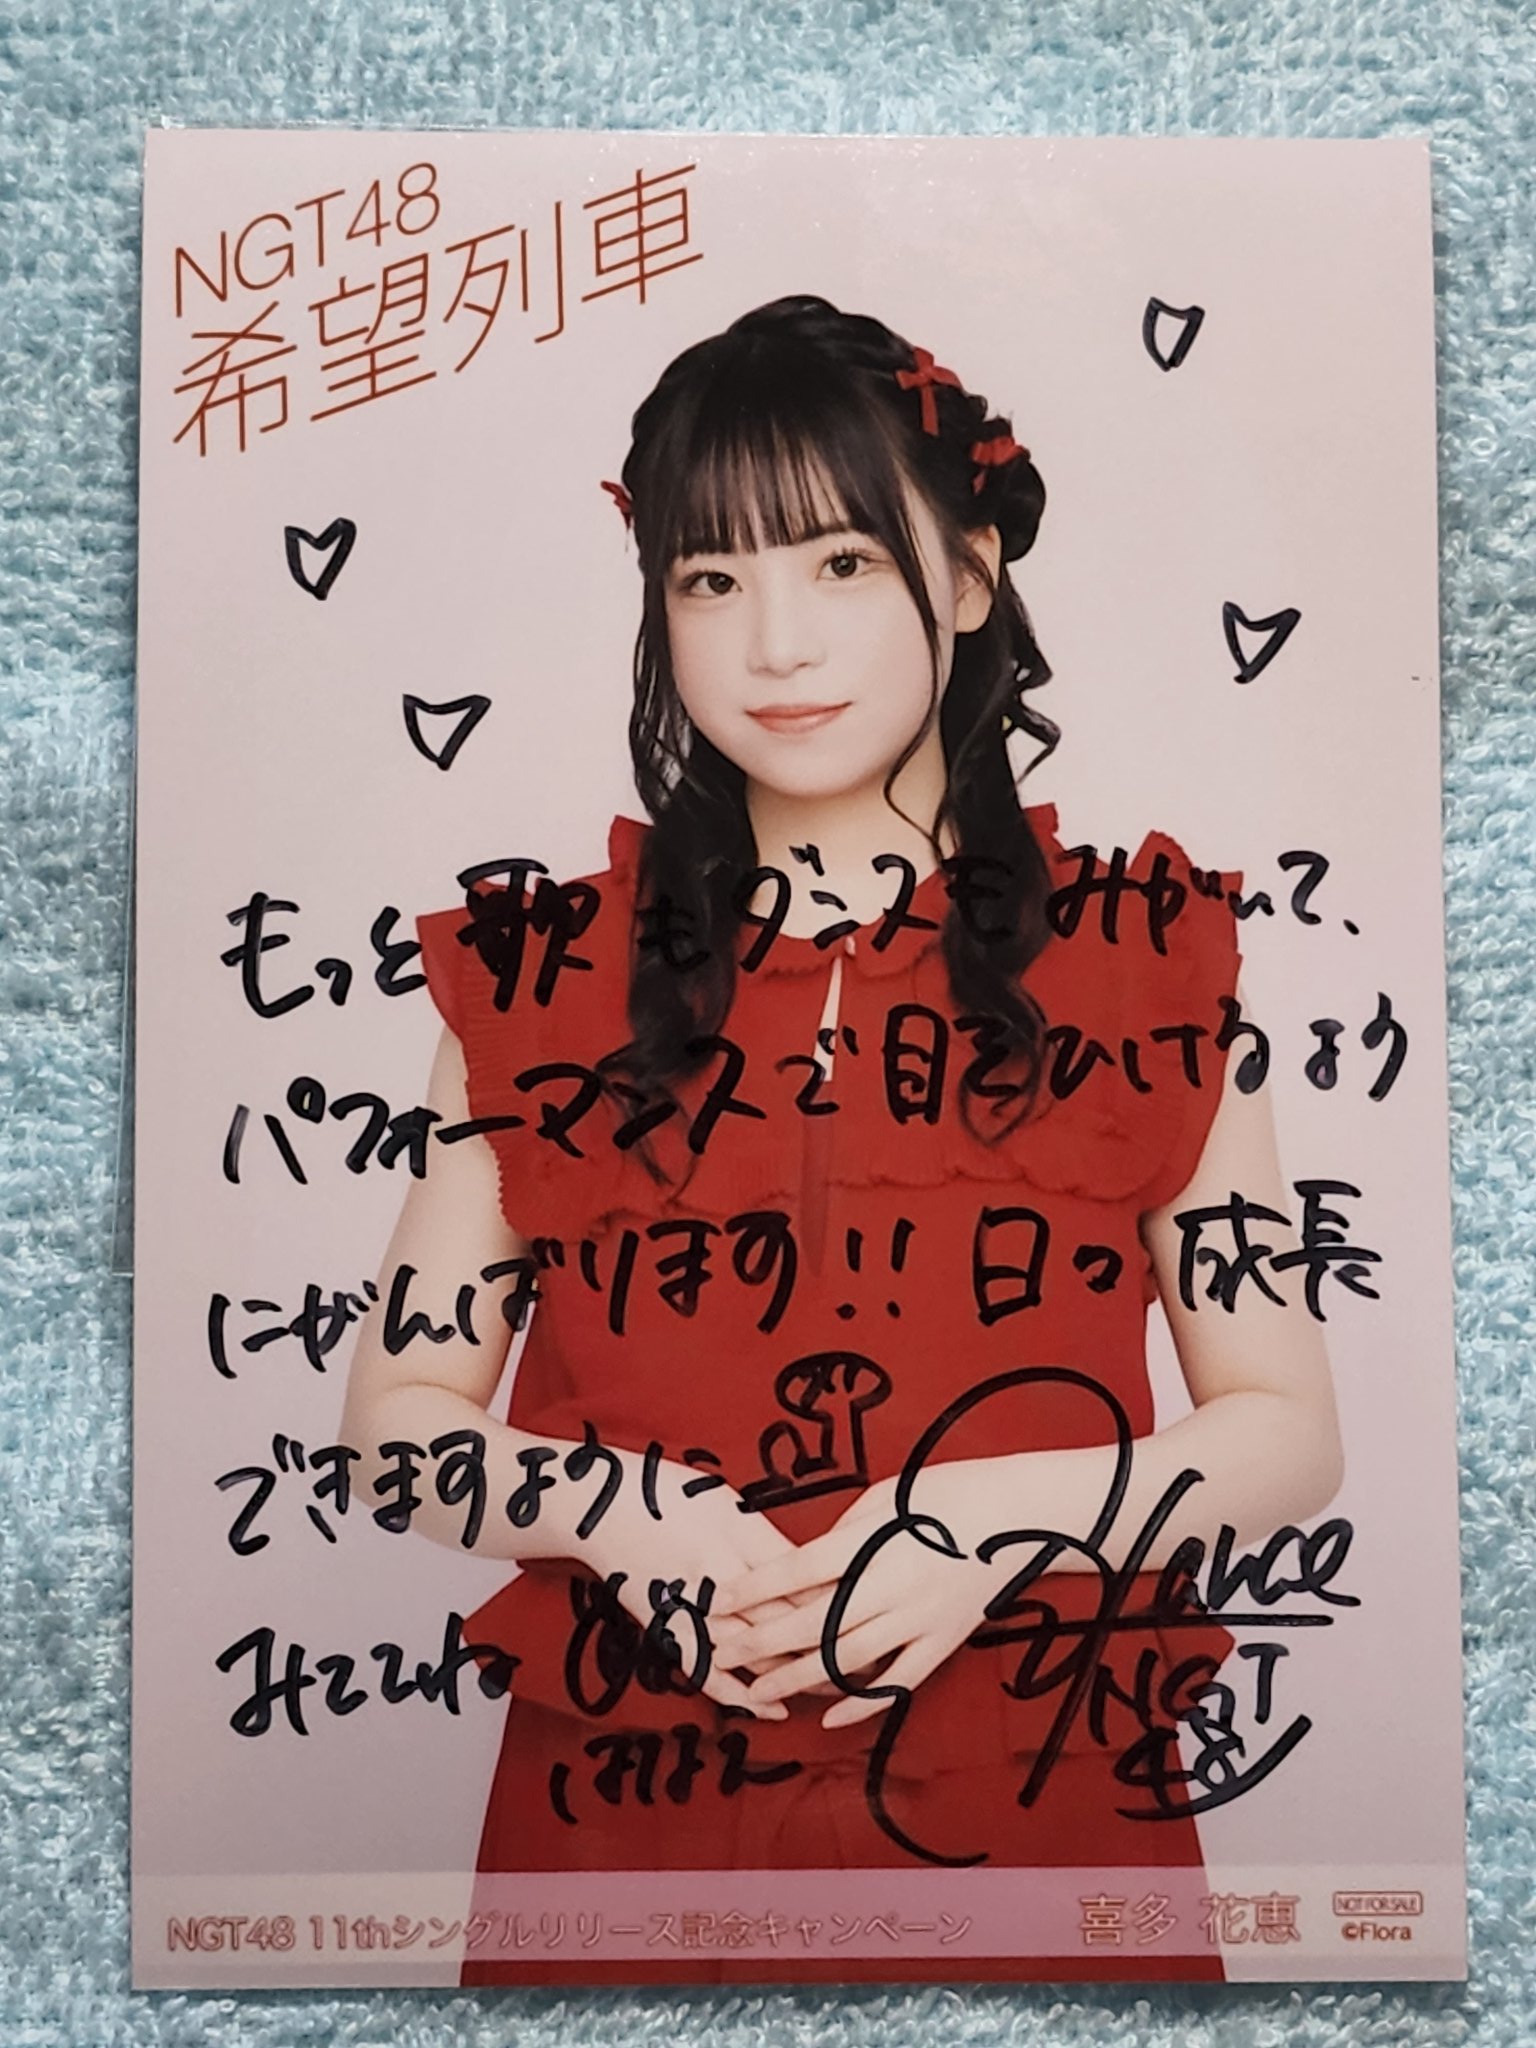 NGT48
希望列車
もっと歌もダンスもみがいて、
パフォーマンスで目をひけるよう
にがんばります!! 日々成長
できますように
みててね
Hanae
NGT
48
NGT48 11thシングルリリース記念キャンペーン
喜多 花恵
NOT FOR SALE
©Flora